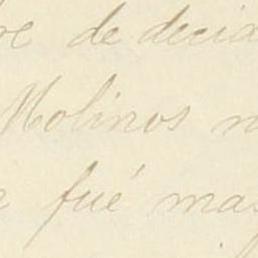 re de decid
Molinos n
r fué mas